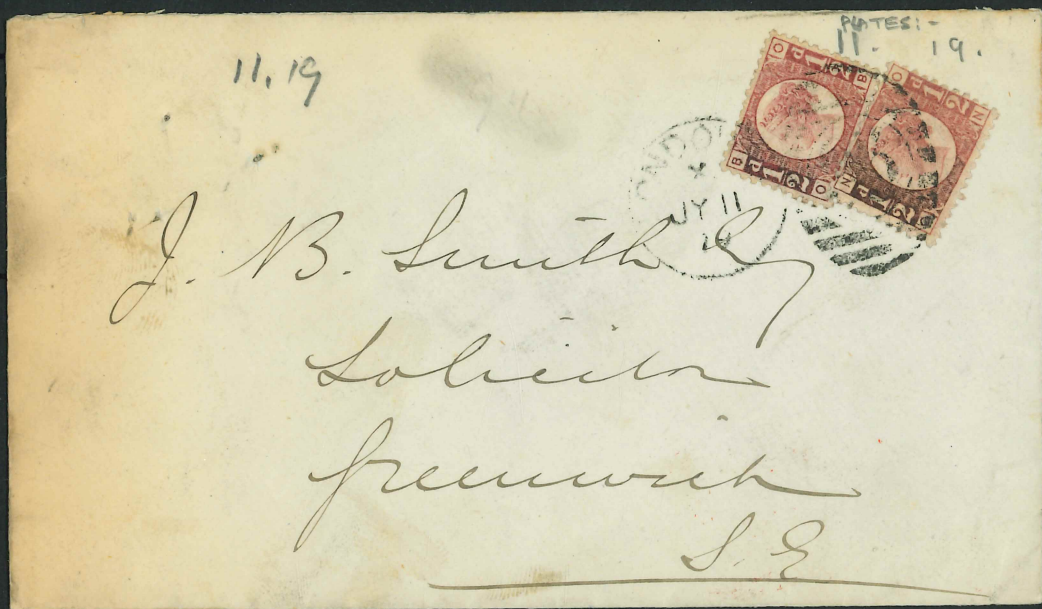 PLATES:-
11. 19.
11, 19
LONDON
X
JY 11
J. B. Smith Esq
Solicitor
Greenwich
S. E